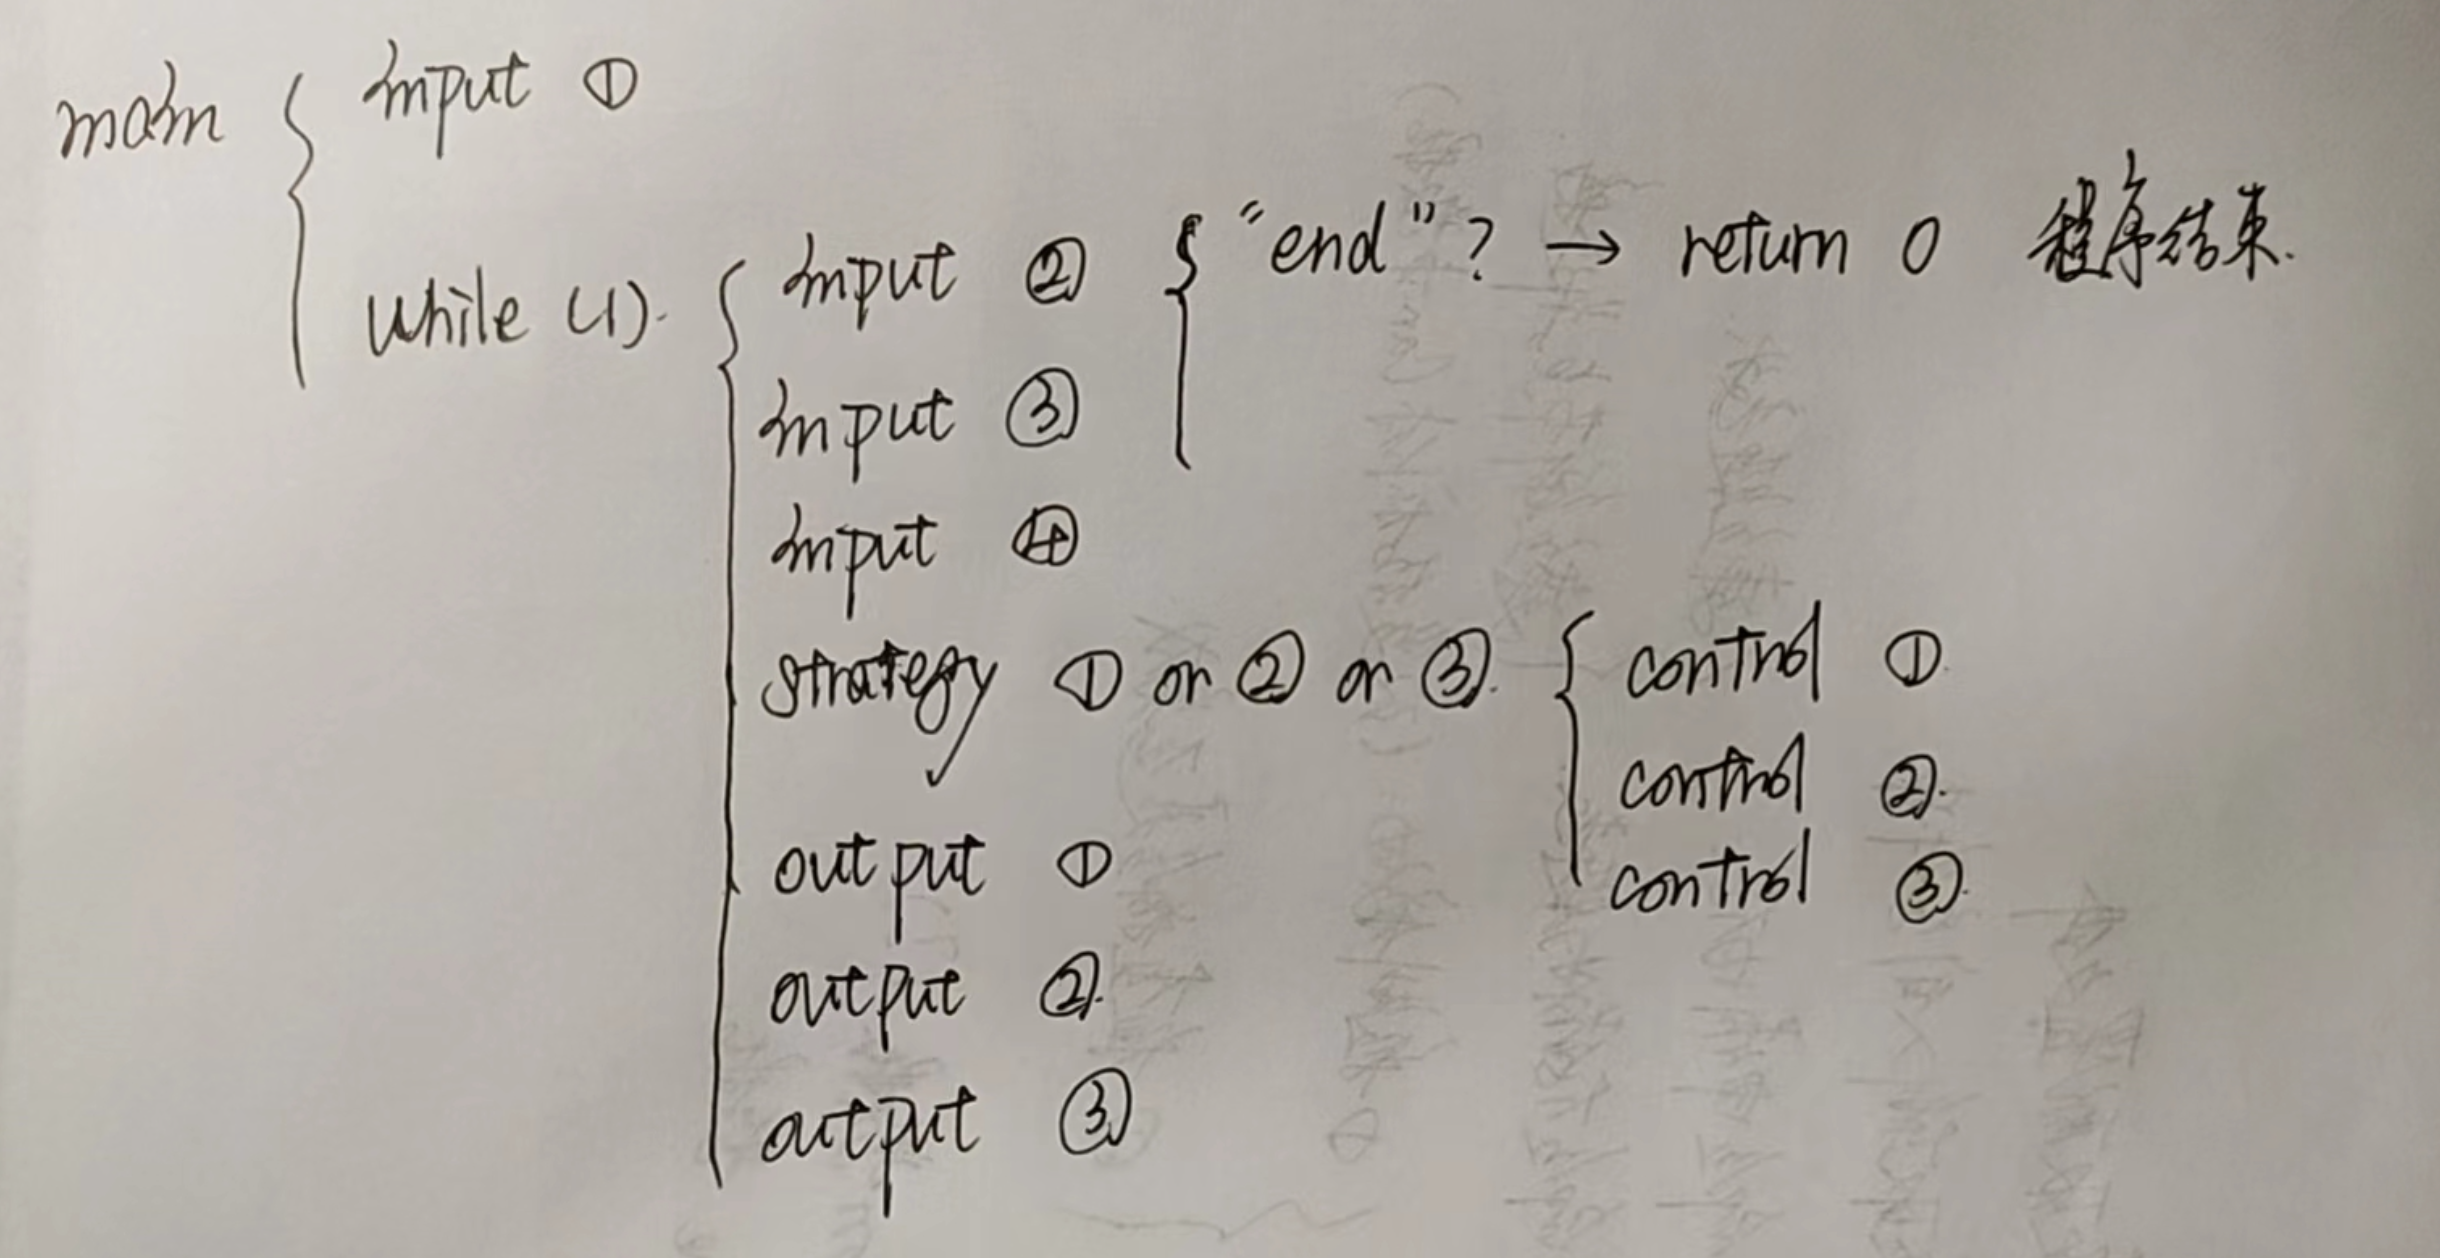 main { input ①
while (1). { input ② { "end"? → return 0 程序结束.
input ③
input ④
strategy ① or ② or ③. { control ①.
control ②.
control ③.
output ①
output ②.
output ③